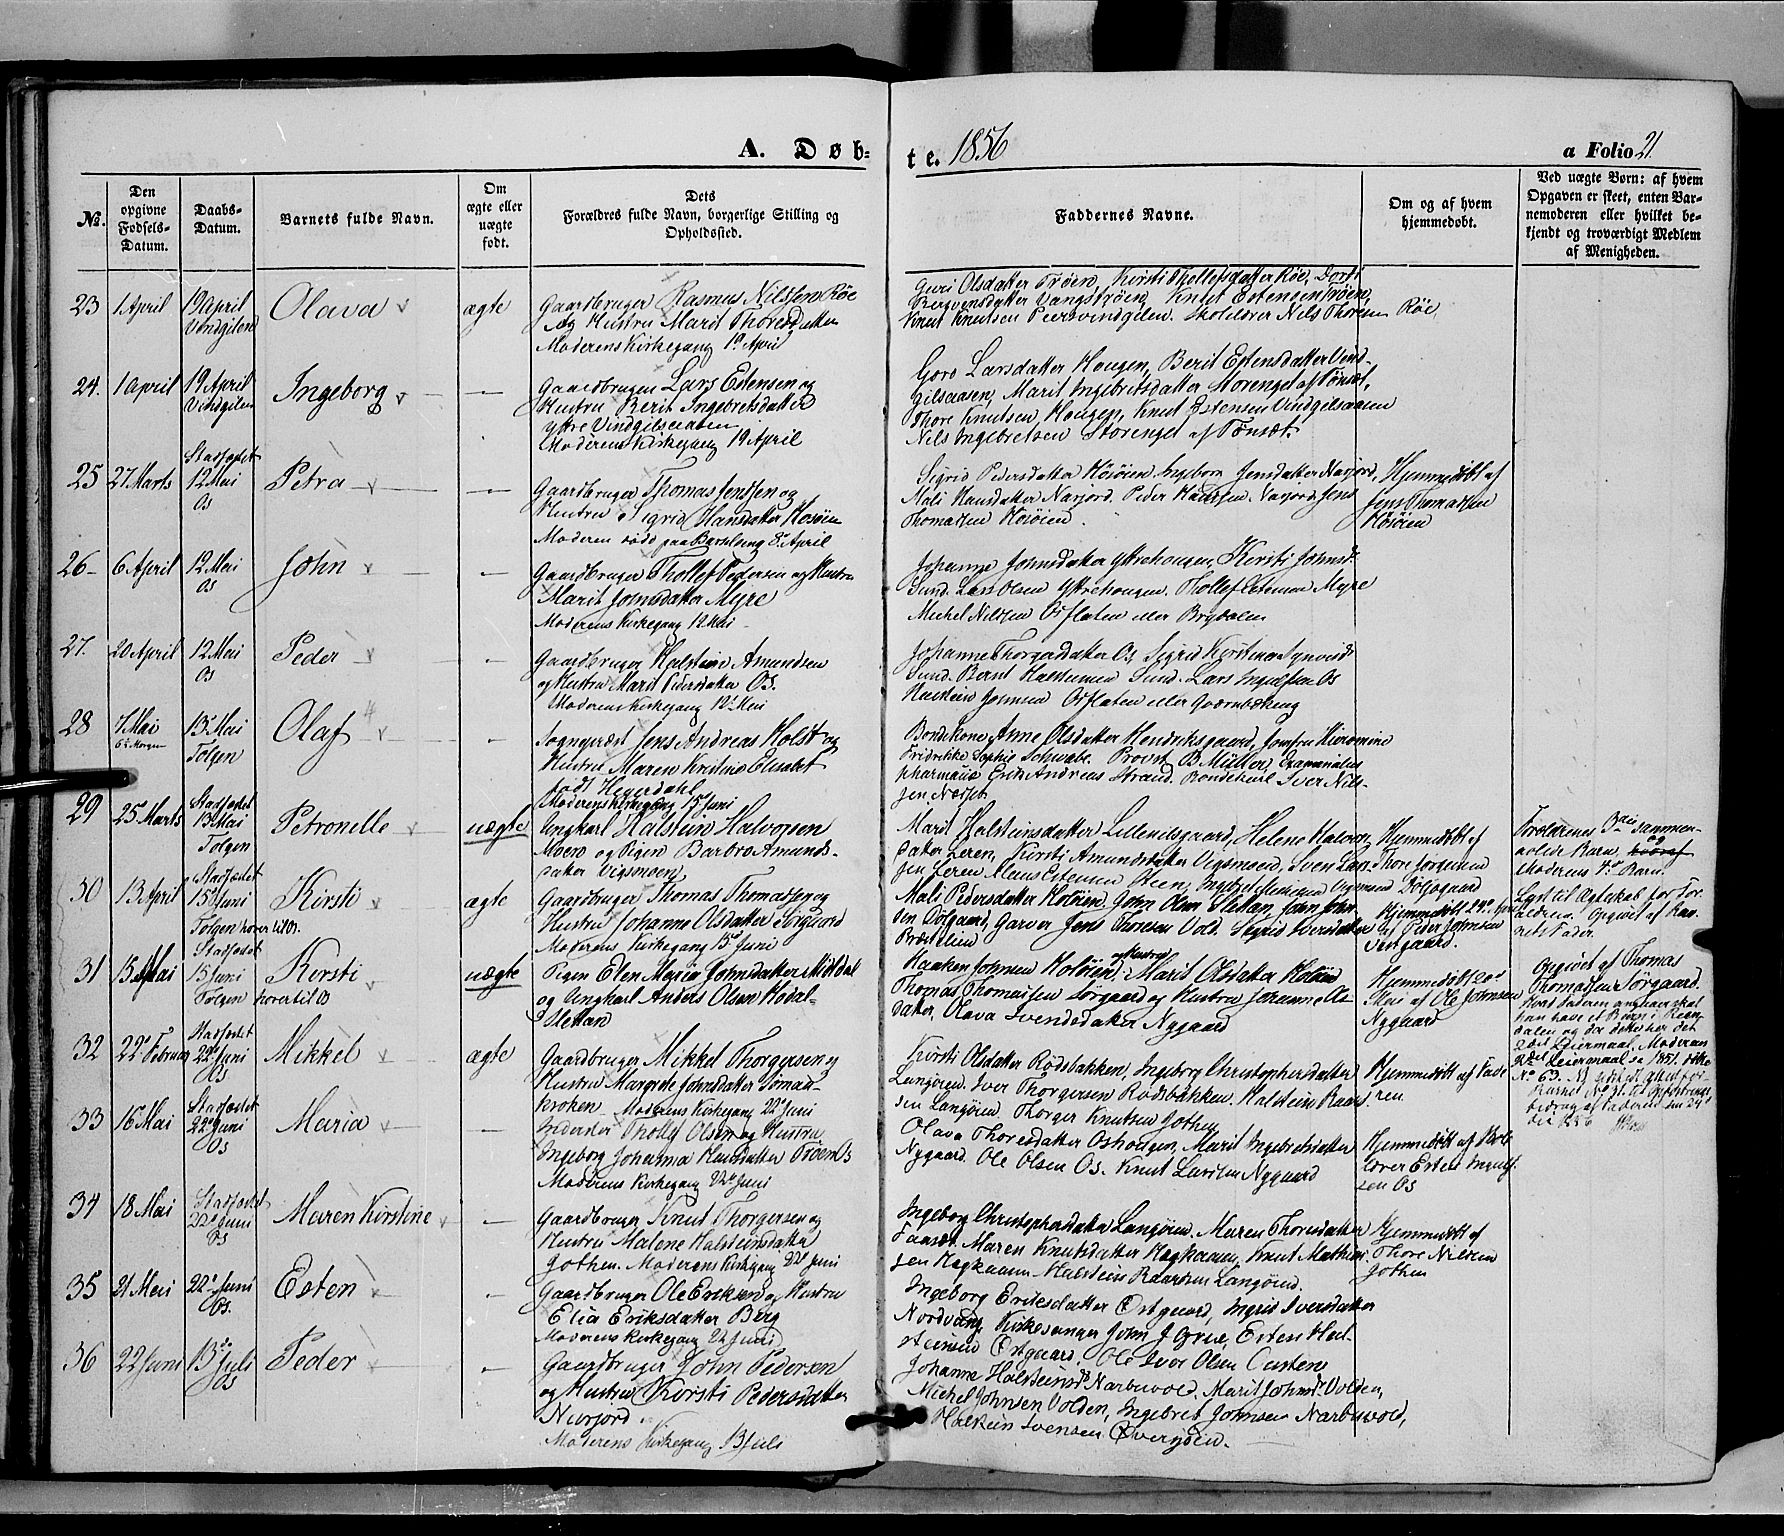 A. Døb-
te. 1856
a Folio 21.
№.
Den opgivne Fødsels-Datum.
Daabs-Datum.
Barnets fulde Navn.
Om ægte eller uægte født.
Dets Forældres fulde Navn, borgerlige Stilling og Opholdssted.
Faddernes Navne.
Om og af hvem hjemmedøbt.
Ved uægte Børn: af hvem
Opgaven er skeet, enten Bar-
nemoderen eller hvilket be-
kjendt og troværdigt Medlem
af Menigheden.
23 1 April 19 April Vindgilen Olava ægte
Gaardbruger Rasmus Nilssen Røe
og Hustru Marit Thoresdatter
Moderens Kirkegang 19 April
Guri Olsdatter Trøen, Kirsti Thollefsdatter Røe, Dorte
Bergvensdatter Vangstrøen, Knut Estensen Trøen,
Knut Knutsen Peersvindgilen. Skolelærer Nils Thoresen Røe
24. 1 April 19 April Vindgilen Ingeborg —
Gaardbruger Lars Estensen og
Hustru Berit Ingebretsdatter
yttre Vindgilsaasen
Moderens Kirkegang 19 April
Goro Larsdatter Hougen, Berit Estensdatter Vind-
gilsaasen, Marit Ingebretsdatter Storenget af Tønset,
Thore Knutsen Hougen, Knut Estensen Vindgilsaasen
Nils Ingebretsen Storenget af Tønset.
25 27 Marts Stadfæstet 12 Mai Os Petra —
Gaardbruger Thomas Jensen og
Hustru Sigrid Hansdatter Hosøien
Moderen død paa Barselseng 8 April
Sigrid Pedersdatter Hosøien Ingeborg Jensdatter Narjord,
Mali Hansdatter Narjord. Peder Hansen Narjord Jens
Thomassen Hosøien.
Hjemmedøbt af
Jens Thomassen
Hosøien
26 6 April 12 Mai Os John —
Gaardbruger Thollef Pedersen og Hustru
Marit Johnsdatter Myre
Moderens Kirkegang 12 Mai
Johanne Johnsdatter Yttrehougen, Kirsti Johnsd.
Sund. Lars Olsen Yttrehougen. Thollef Estensen Myre
Michel Nilssen Osflaten eller Brydalen
27. 20 April 12 Mai Os Peder —
Gaardbruger Halstein Amundsen
og Hustru Marit Pedersdatter Os.
Moderens Kirkegang 12 Mai
Johanne Os, Sigrid
Sund. Bernt Halstensen Sund. Lars Ingulfsen Os
Halstein Jonsen Osflaten eller Qværnbækeng
28 7 Mai 13 Mai Tolgen Olaf —
Sognepræst Jens Andreas Holst og
Hustru Maren Kristine Elisabet
født Heyerdahl
Moderens Kirkegang 15 Juni
Bondekone Anne Olsdatter Hendriksgaard, Jomfru Hieronimine
Fridrikke Sophie Schwabe. Provst B Müller, Examinatus
pharmaciæ Erik Andreas Strand. Bondekarl Iver Nils-
sen Næsset
29 25 Marts Stadfæstet 13 Mai Tolgen Petronelle uægte
Ungkarl Halstein Halvorsen
Moen og Pigen Barbro Amunds-
datter Vigsmoen
Marit Halsteinsdatter Lillenilsgaard, Helene Halvors-
datter Leren, Kirsti Amundsdatter Vigsmoen, Sven Lar-
sen Leren Mons Estensen Steen, Vigsmoen
Hjemmedøbt af
Thore Jørgensen
Forældrenes 3die sammen-
avlede Barn, og
Moderens 4de Barn.
Lyst til Ægteskab for For-
ældrene. Opgivet af Bar-
nets Fader.
30 13 April Stadfæstet 15 Juni Tolgen hører til Os. Kirsti ægte
Gaardbruger Thomas Thomassen og
Hustru Johanne Olsdatter Sørgaard
Moderens Kirkegang 15 Juni
Mali Pedersdatter Holøien. John Olsen Slettan, John John-
sen Dølgaard, Garver Jens Thoresen Vold. Sigrid Iversdatter
Præstelien
Hjemmedøbt 24de April
af Peder Johnsen
Vestgaard.
31 15 Mai Stadfæstet 15 Juni Tolgen hører til Os Kirsti uægte
Pigen Elen Maria Johnsdatter Midtdal
og Ungkarl Anders Olsen Hodal-
Slettan
Haaken Johnsen Holøien og Hustru Marit Olsdatter Holøien
Thomas Thomassen Sørgaard og Hustru Johanne Ols-
datter, Olava Svendsdatter Nygaard
Hjemmedøbt 20de
Mai af Ole Johnsen
Nygaard
Opgivet af Thomas
Thomassen Sørgaard.
32 22 Februar Stadfæstet 22 Juni Os Mikkel ægte
Gaardbruger Mikkel Thorgersen og
Hustru Margrete Johnsdatter Sømaa-
kroken Moderens Kirkegang 22 Juni
Kirsti Olsdatter Rødsbakken, Ingeborg Christophersdatter
Langøien. Iver Thorgersen Rødsbakken. Halstein Raar-
sen Langøien, Thorger Knutsen Jothen
Hjemmedøbt af Fade-
ren
33 16 Mai Stadfæstet 22 Juni Os Maria —
Inderster Thollef Olsen og Hustru
Ingeborg Johanna Hansdatter Trøen Os
Moderens Kirkegang 22 Juni
Olava Thoresdatter Oshougen, Marit Ingebretsdatter
Nygaard. Ole Olsen Os. Knut Larsen Nygaard
Hjemmedøbt af Skole-
lærer Esten Ingulf-
sen Os
34 18 Mai Stadfæstet 22 Juni Os Maren Kirstine —
Gaardbruger Knut Thorgersen og
Hustru Malene Halsteinsdatter
Jothen. Moderens Kirkegang 22 Juni
Ingeborg Christophersdatter Langøien. Maren Thoresdatter
Tønset. Maren Knutsdatter Hagkaasen, Knut Mathi-
sen Hagkaasen Halstein Raarsen Langøien.
Hjemmedøbt af
Thore Nilssen
Jothen
35 21 Mai 22 Juni Os. Esten —
Gaardbruger Ole Eriksen og Hustru
Elia Eriksdatter Berg
Moderens Kirkegang 22 Juni
Ingeborg Eriksdatter Østgaard, Ingrid Iversdatter
Nordvang Kirkesanger John J Grue, Esten Hal-
steinsen Østgaard. Ole Iver Olsen
36 22 Juni 13 Juli Os Peder —
Gaardbruger John Pedersen
og Hustru Kirsti Pedersdatter
Narjord.
Moderens Kirkegang 13 Juli
Johanne Halsteinsd. Narbuvold. Marit Johnsd. Volden,
Michel Johnsen Volden, Ingebret Johnsen Narbuvold,
Halstein Svensen Øversjøen.